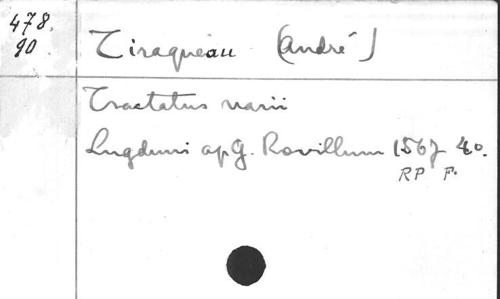 478.
90
Tiraqueau (André)
Tractatus varii
Lugduni ap. G. Rovillum 1567 4o.
RP F.